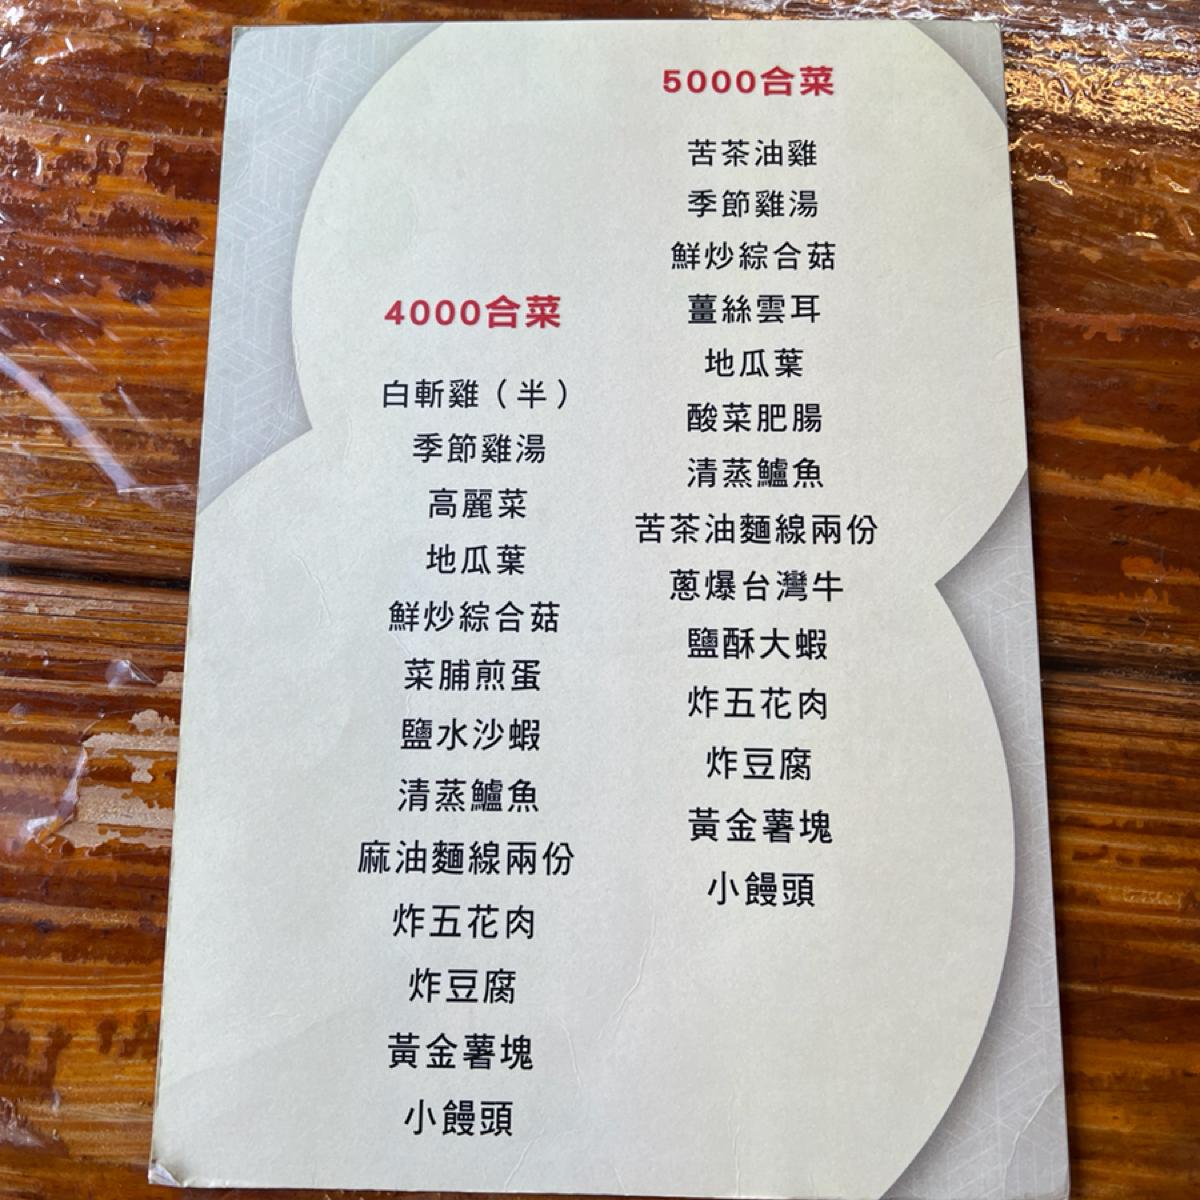 4000合菜
白斬雞（半）
季節雞湯
高麗菜
地瓜葉
鮮炒綜合菇
菜脯煎蛋
鹽水沙蝦
清蒸鱸魚
麻油麵線兩份
炸五花肉
炸豆腐
黃金薯塊
小饅頭
5000合菜
苦茶油雞
季節雞湯
鮮炒綜合菇
薑絲雲耳
地瓜葉
酸菜肥腸
清蒸鱸魚
苦茶油麵線兩份
蔥爆台灣牛
鹽酥大蝦
炸五花肉
炸豆腐
黃金薯塊
小饅頭